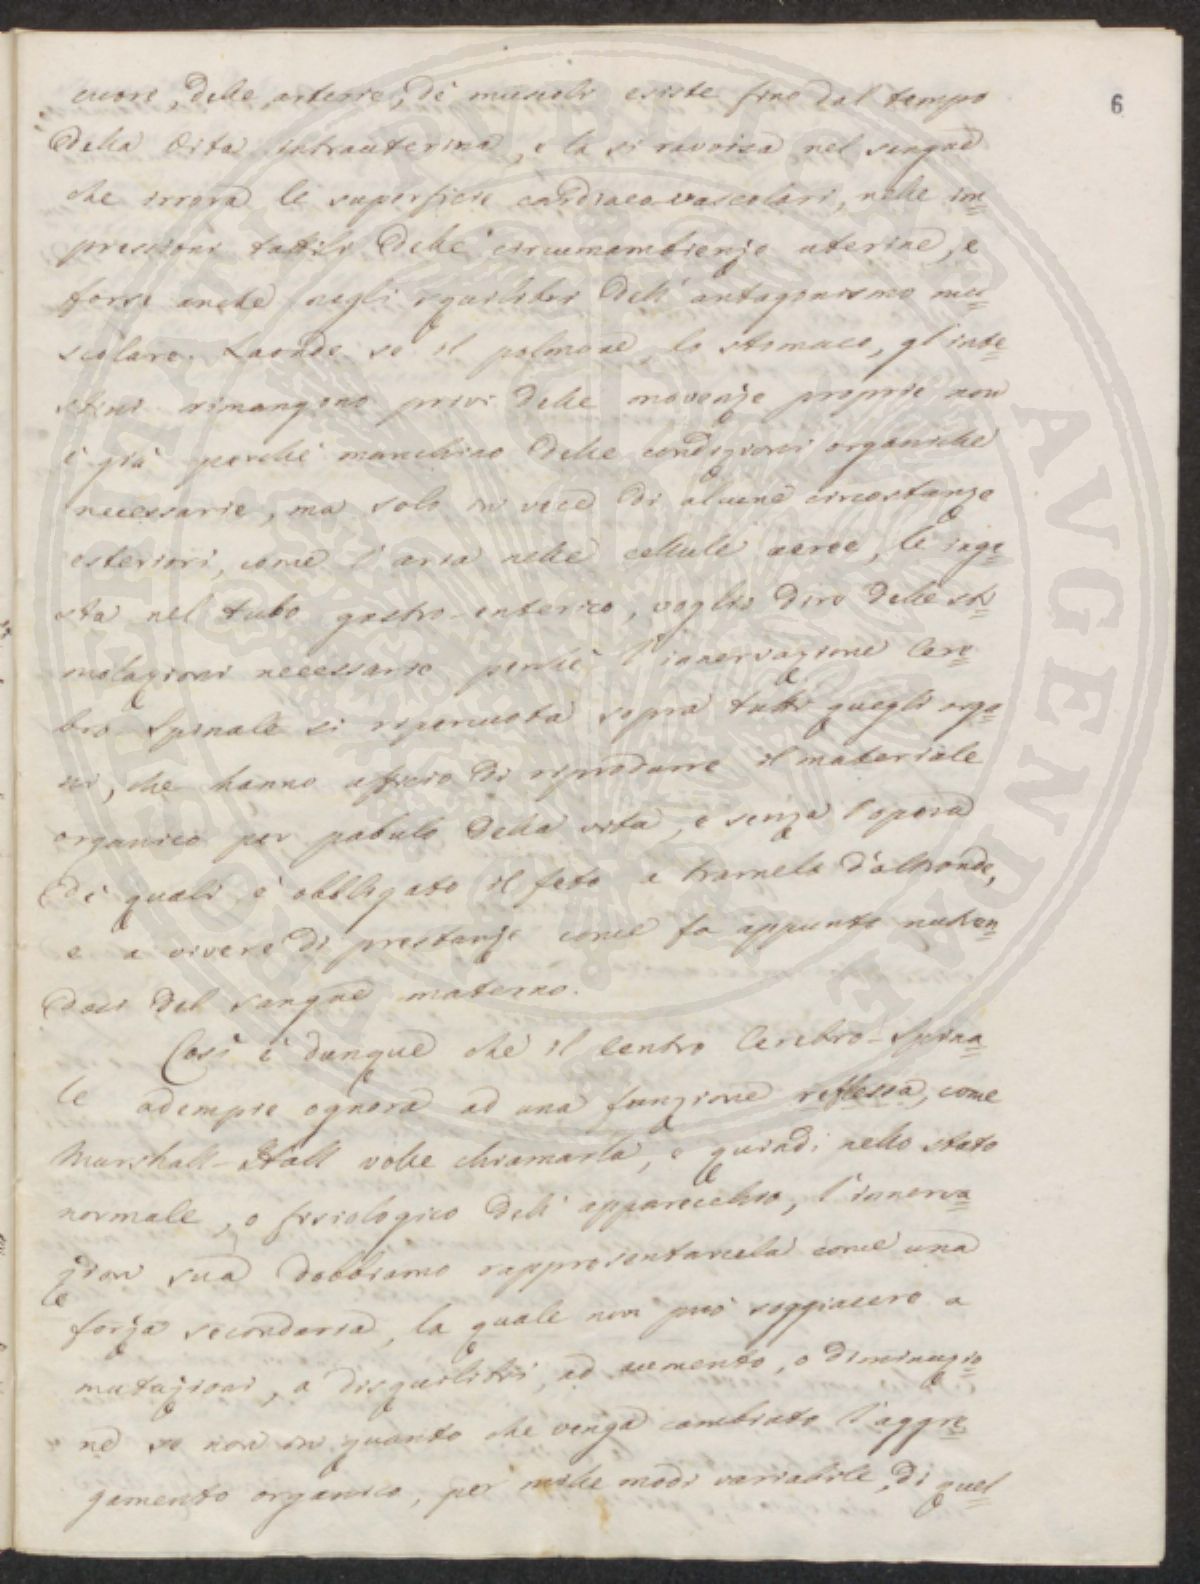 6
cuore, delle arterie, de' muscoli esiste fino dal tempo
della vita intrauterina, e la si ravvisa nel sangue
che irrora le superficie cardiaco-vascolari, nelle im=
pressioni tattili delle circumambienze uterine, e
forse anche negli squilibri dell' antagonismo mu=
scolare. Laonde se il polmone, lo stomaco, gl' inte=
stini rimangono privi delle movenze proprie, non
è già perchè manchino delle condizioni organiche
necessarie, ma solo in vece di alcune circostanze
esteriori, come l' aria nelle cellule aeree, le inge=
sta nel tubo gastro-enterico, voglio dire delle sti=
molazioni necessarie perchè l' innervazione Cere=
bro-Spinale si ripercuota sopra tutti quegli orga=
ni, che hanno officio di riprodurre il materiale
organico per pabulo della vita, e senza l' opera
de' quali è obbligato il feto a trarnelo d' altronde,
e a vivere di prestanze come fa appunto nutren=
dosi del sangue materno.
Così è dunque che il Centro Cerebro-Spina=
le adempie ognora ad una funzione reflessa, come
Marshall-Hall volle chiamarla, e quindi nello stato
normale, o fisiologico dell' apparecchio, l' innerva=
zion sua dobbiamo rappresentarcela come una
forza secondaria, la quale non può soggiacere a
mutazioni, a disquilibri, ad aumento, o diminuzio=
ne se non in quanto che venga cambiato l' aggre=
gamento organico, per mille modi variabile, di quel=